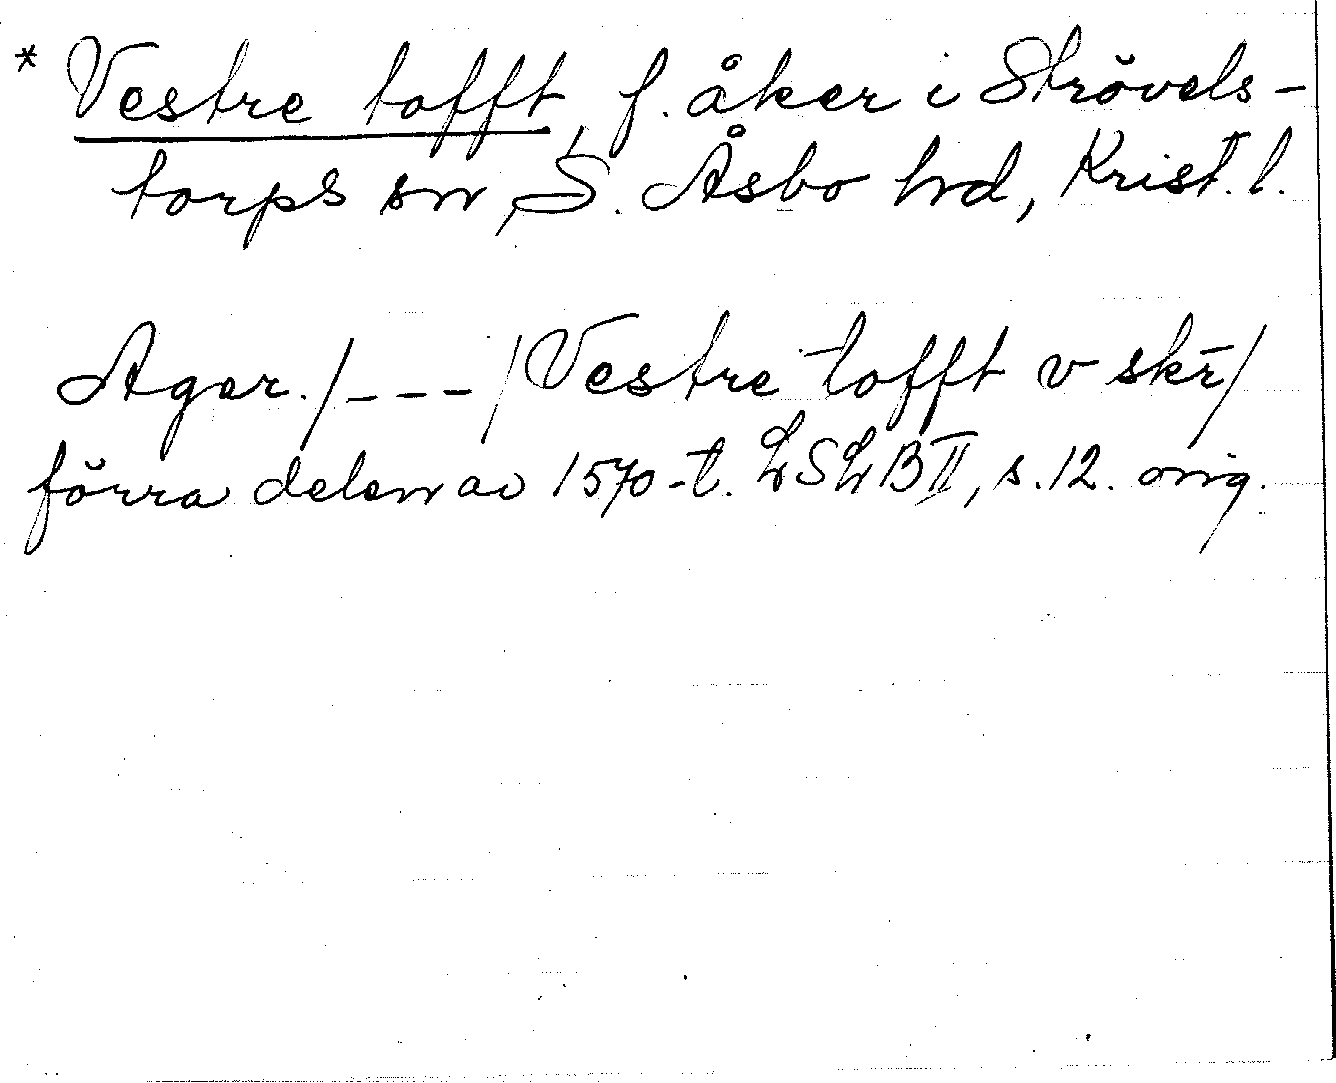 * Vestre tofft, f. åker i Strövels-
torps sn, S. Åsbo hd, Krist. l.
Ager. /---/ Vestre tofft v skr̄ /
förra delen av 1570-t. LSLB II, s. 12. orig.